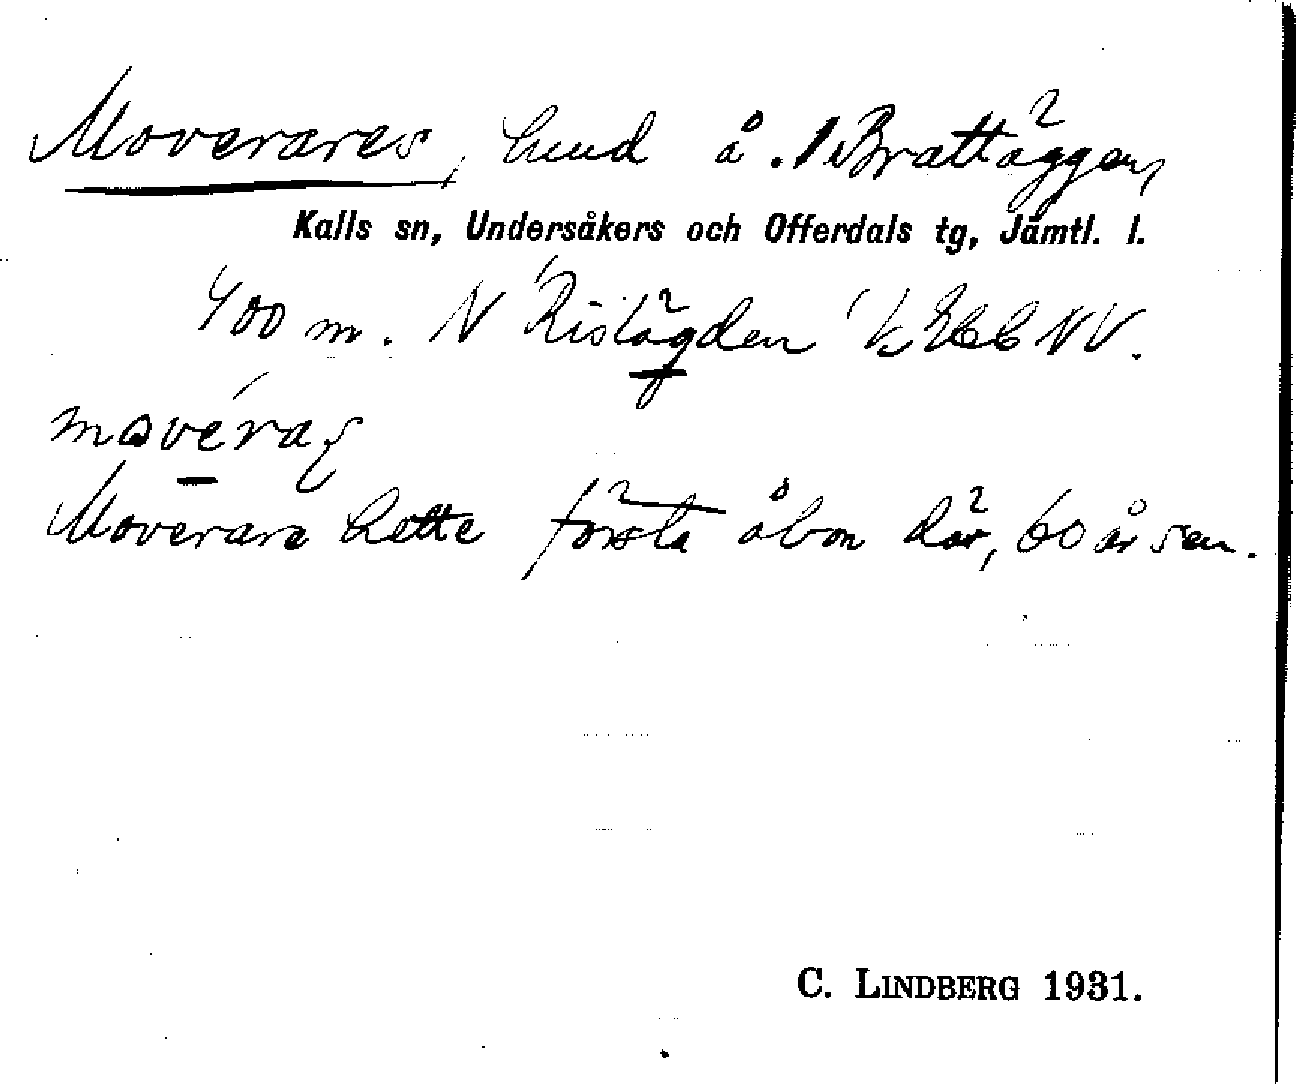 Moverares, hmd å. Brattäggen,
Kalls sn, Undersåkers och Offerdals tg, Jämtl. l.
400 m. N Ristägden NV.
Moverare hette första åbon där, 60 år sen.
C. LINDBERG 1931.